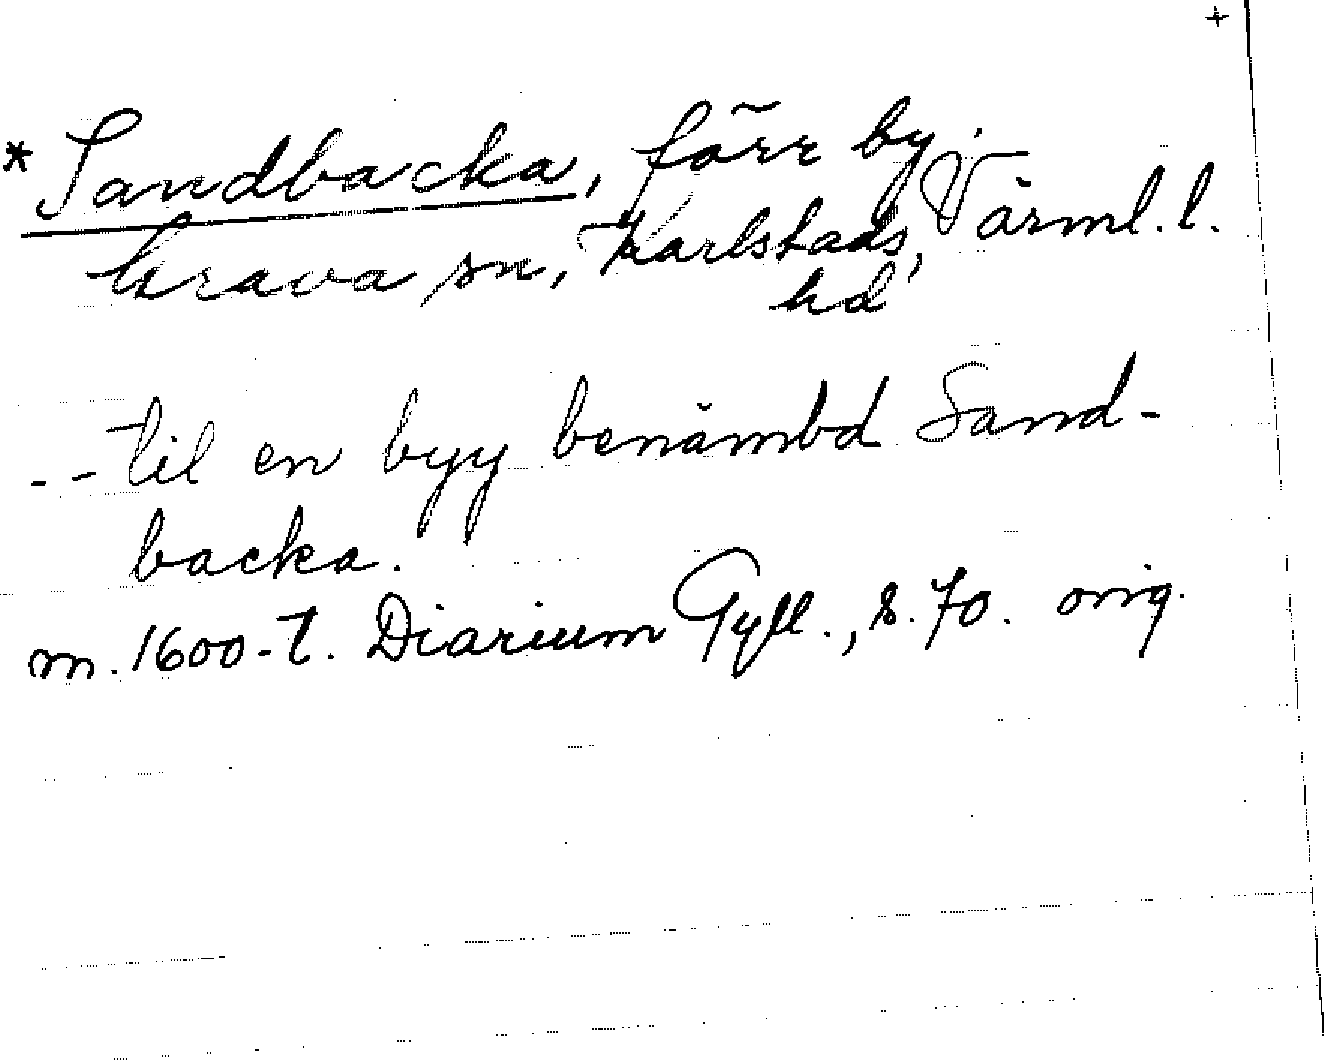 +
* Sandbacka, förr by.
Grava sn, Karlstads hd, Värml. l.
-- til en byy benämbd Sand-
backa.
m. 1600-t. Diarium Gyll., s. 70. orig.